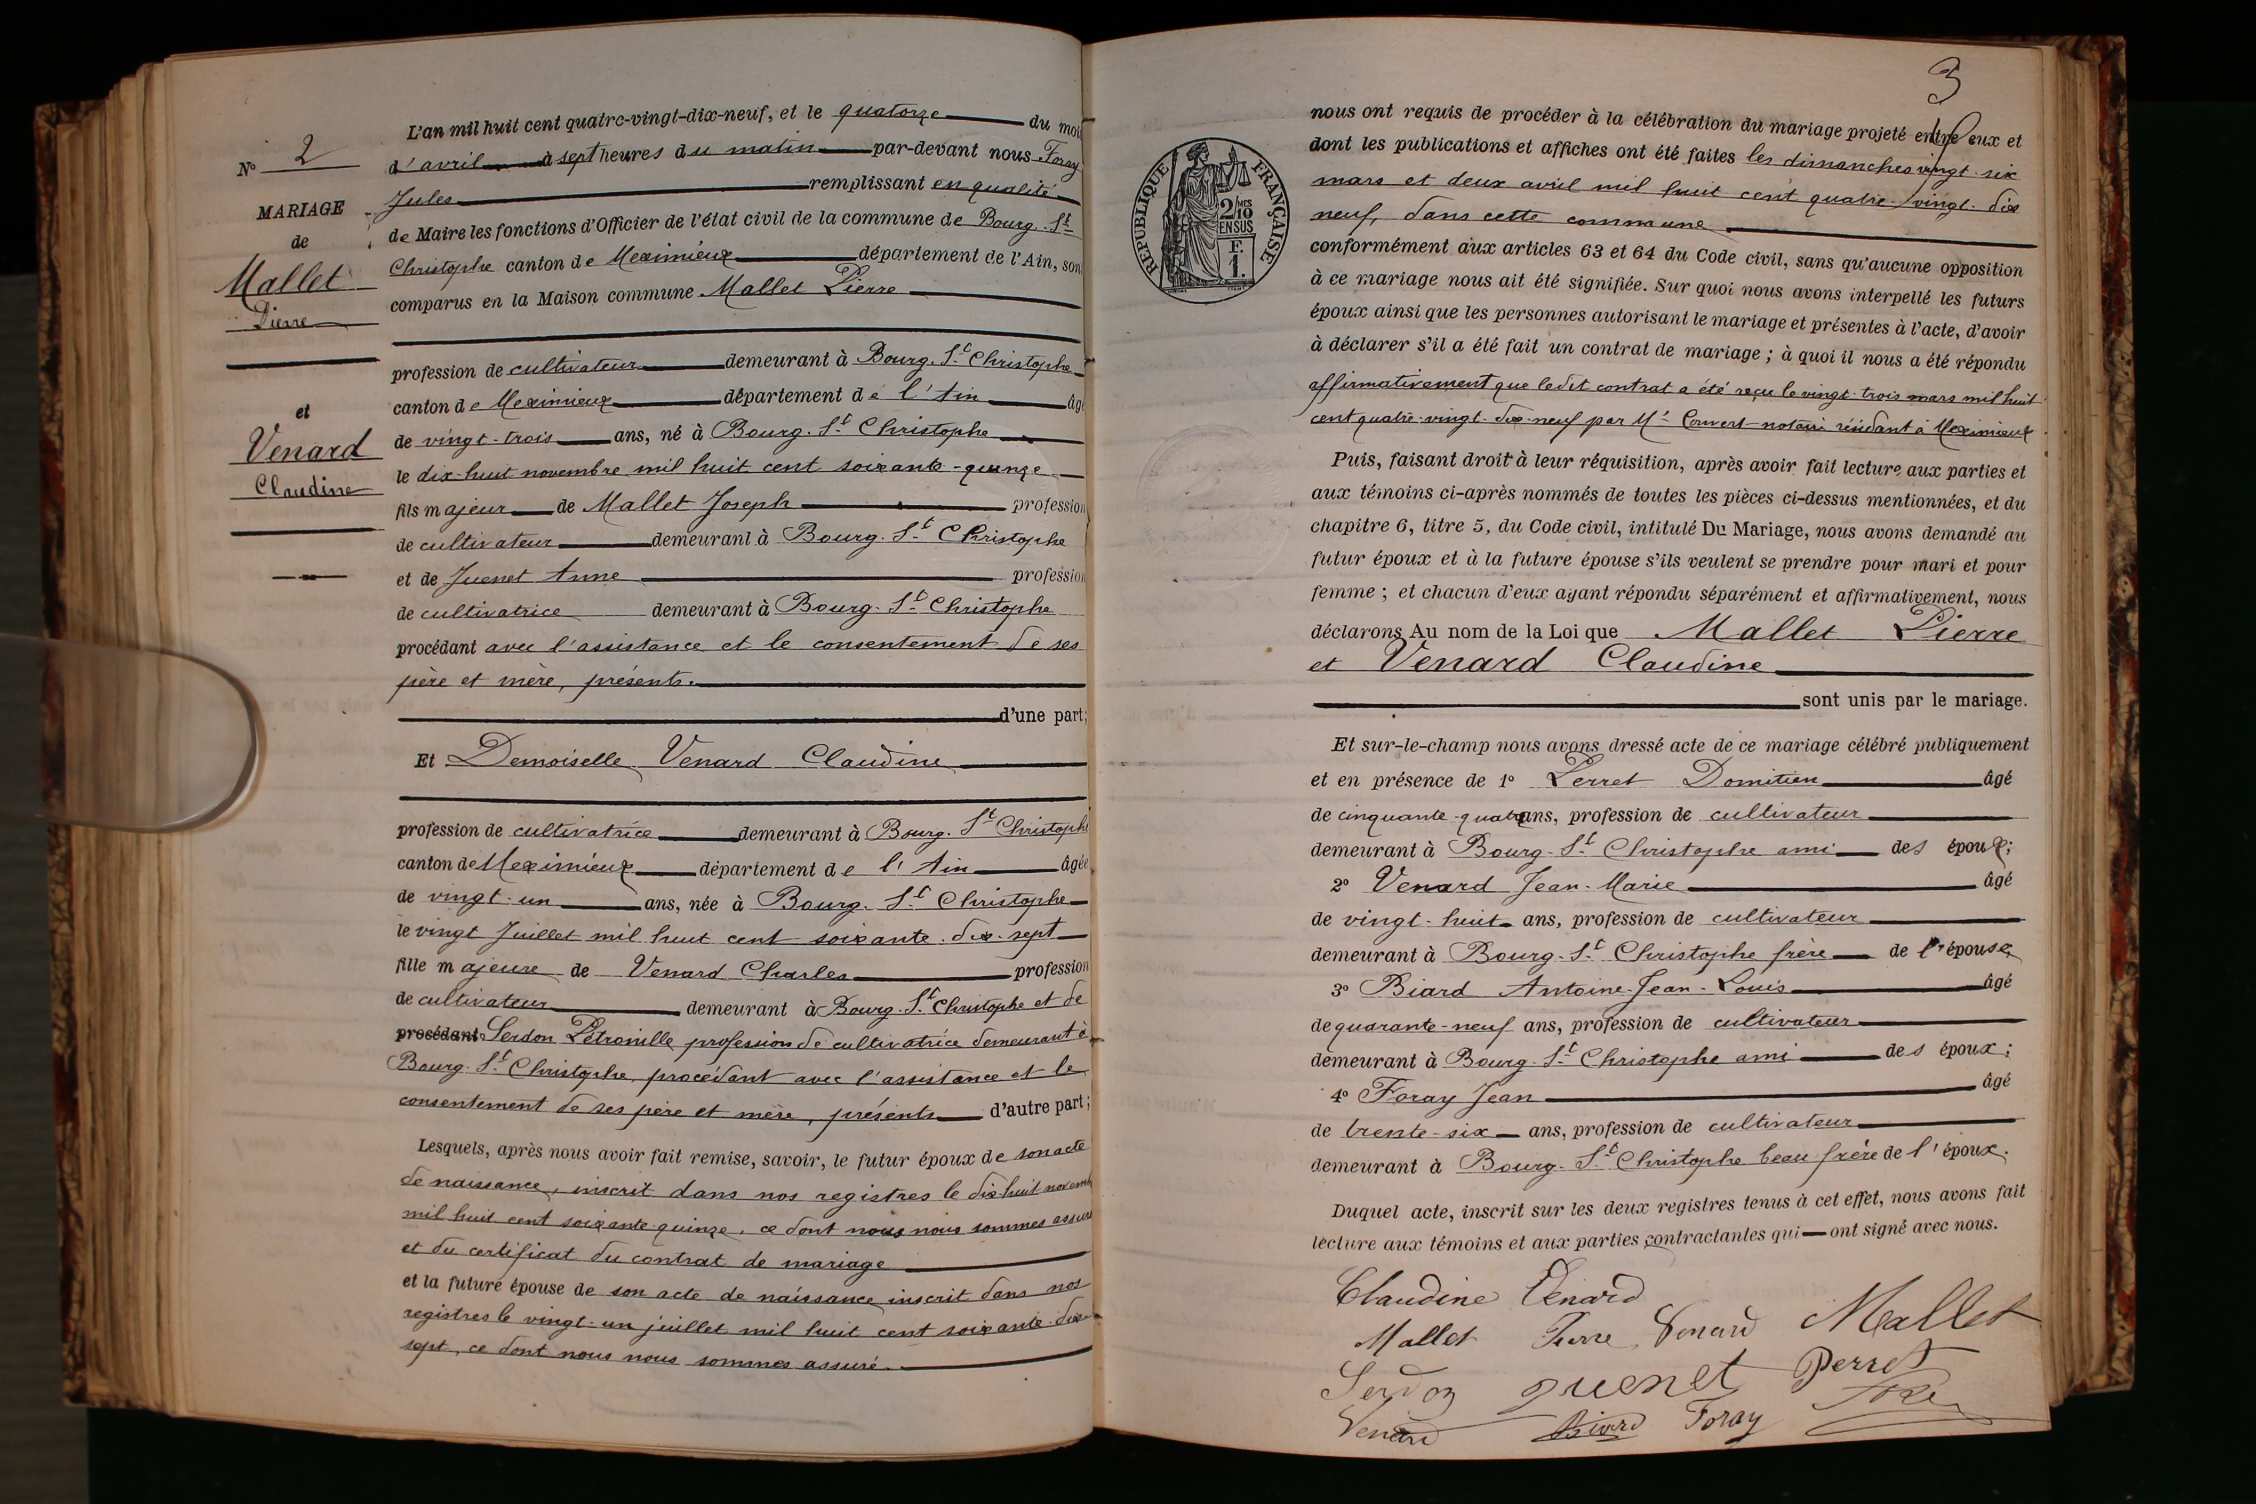 N° 2
MARIAGE
de
Mallet
Pierre
et
Venard
Claudine
L'an mil huit cent quatre-vingt-dix-neuf, et le quatorze du moi
d'avril à sept heures du matin par-devant nous Foray
Jules remplissant en qualité
de Maire les fonctions d'Officier de l'état civil de la commune de Bourg-St
Christophe canton de Meximieux département de l'Ain, son
comparus en la Maison commune Mallet Pierre
profession de cultivateur demeurant à Bourg-St Christophe
canton de Meximieux département de l'Ain âgé
de vingt-trois ans, né à Bourg-St Christophe
le dix-huit novembre mil huit cent soixante-quinze
fils majeur de Mallet Joseph profession
de cultivateur demeurant à Bourg-St Christophe
et de Juenet Anne profession
de cultivatrice demeurant à Bourg-St Christophe
procédant avec l'assistance et le consentement de ses
père et mère, présents.
d'une part;
Et Demoiselle Venard Claudine
profession de cultivatrice demeurant à Bourg-St Christophe
canton de Meximieux département de l'Ain âgée
de vingt-un ans, née à Bourg-St Christophe
le vingt Juillet mil huit cent soixante-dix-sept
fille majeure de Venard Charles profession
de cultivateur demeurant à Bourg-St Christophe et de
procédant Serdon Pétronille profession de cultivatrice demeurant à
Bourg-St Christophe, procédant avec l'assistance et le
consentement de ses père et mère, présents d'autre part;
Lesquels, après nous avoir fait remise, savoir, le futur époux de son acte
de naissance, inscrit dans nos registres le dix huit novemb
mil huit cent soixante quinze, ce dont nous nous sommes assuré
et du certificat du contrat de mariage
et la future épouse de son acte de naissance inscrit dans nos
registres le vingt-un juillet mil huit cent soixante-dix-
sept, ce dont nous nous sommes assuré.
3
RÉPUBLIQUE FRANÇAISE
2/10 MES
EN SUS
F.
1.
nous ont requis de procéder à la célébration du mariage projeté entre eux et
dont les publications et affiches ont été faites les dimanches vingt-six
mars et deux avril mil huit cent quatre-vingt-dix
neuf, dans cette commune
conformément aux articles 63 et 64 du Code civil, sans qu'aucune opposition
à ce mariage nous ait été signifiée. Sur quoi nous avons interpellé les futurs
époux ainsi que les personnes autorisant le mariage et présentes à l'acte, d'avoir
à déclarer s'il a été fait un contrat de mariage ; à quoi il nous a été répondu
affirmativement que ledit contrat a été reçu le vingt-trois mars mil huit
cent quatre-vingt-dix-neuf par Me Convert notaire résidant à Meximieux
Puis, faisant droit à leur réquisition, après avoir fait lecture aux parties et
aux témoins ci-après nommés de toutes les pièces ci-dessus mentionnées, et du
chapitre 6, titre 5, du Code civil, intitulé Du Mariage, nous avons demandé au
futur époux et à la future épouse s'ils veulent se prendre pour mari et pour
femme ; et chacun d'eux ayant répondu séparément et affirmativement, nous
déclarons Au nom de la Loi que Mallet Pierre
et Venard Claudine
sont unis par le mariage.
Et sur-le-champ nous avons dressé acte de ce mariage célébré publiquement
et en présence de 1° Perret Domitien âgé
de cinquante-quatre ans, profession de cultivateur
demeurant à Bourg-St Christophe ami des époux;
2° Venard Jean-Marie âgé
de vingt-huit ans, profession de cultivateur
demeurant à Bourg-St Christophe frère de l'épouse;
3° Biard Antoine-Jean-Louis âgé
de quarante-neuf ans, profession de cultivateur
demeurant à Bourg-St Christophe ami des époux;
4° Foray Jean âgé
de trente-six ans, profession de cultivateur
demeurant à Bourg-St Christophe beau frère de l'époux.
Duquel acte, inscrit sur les deux registres tenus à cet effet, nous avons fait
lecture aux témoins et aux parties contractantes qui ont signé avec nous.
Claudine Venard
Mallet Pierre Venard Mallet
Serdon Juenet Perret
Venard Biard Foray